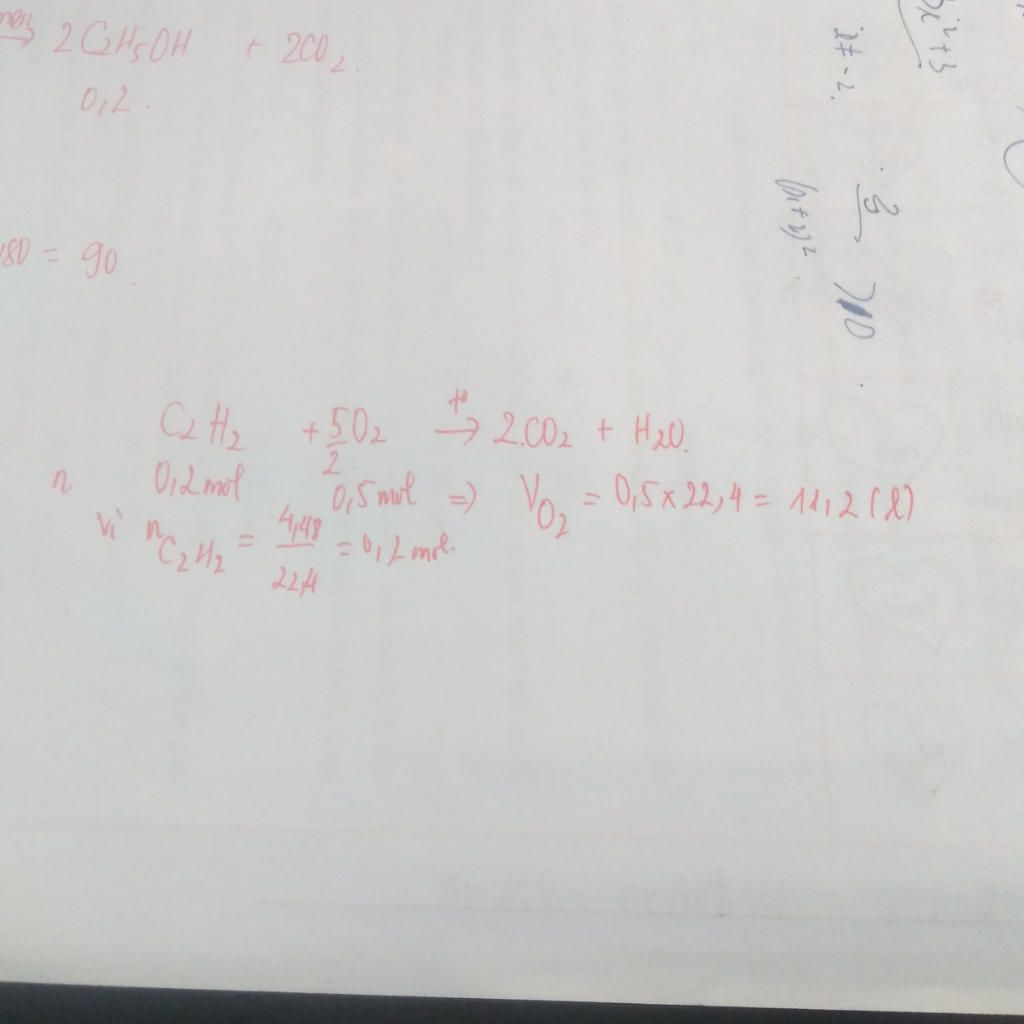 men → 2C2H5OH + 2CO2.
0,2.
180 = 90
C2H2 + 5/2 O2 →(t°) 2CO2 + H2O.
n 0,2 mol 0,5 mol => VO2 = 0,5 x 22,4 = 11,2 (l)
vì nC2H2 = 4,48/22,4 = 0,2 mol.